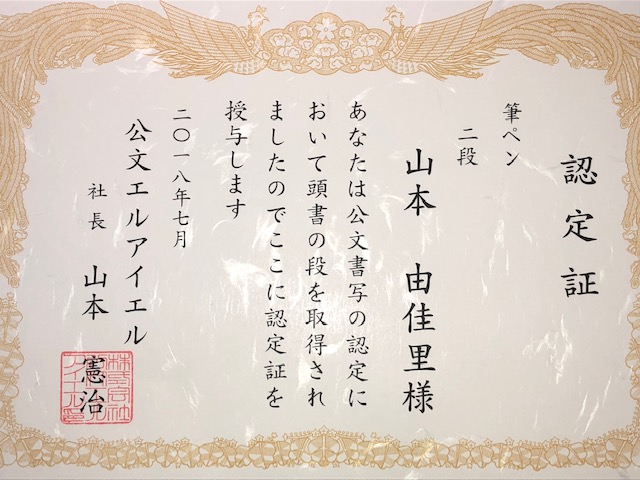 認定証
筆ペン
二段
山本 由佳里様
あなたは公文書写の認定に
おいて頭書の段を取得され
ましたのでここに認定証を
授与します
二〇一八年七月
公文エルアイエル
社長 山本 憲治